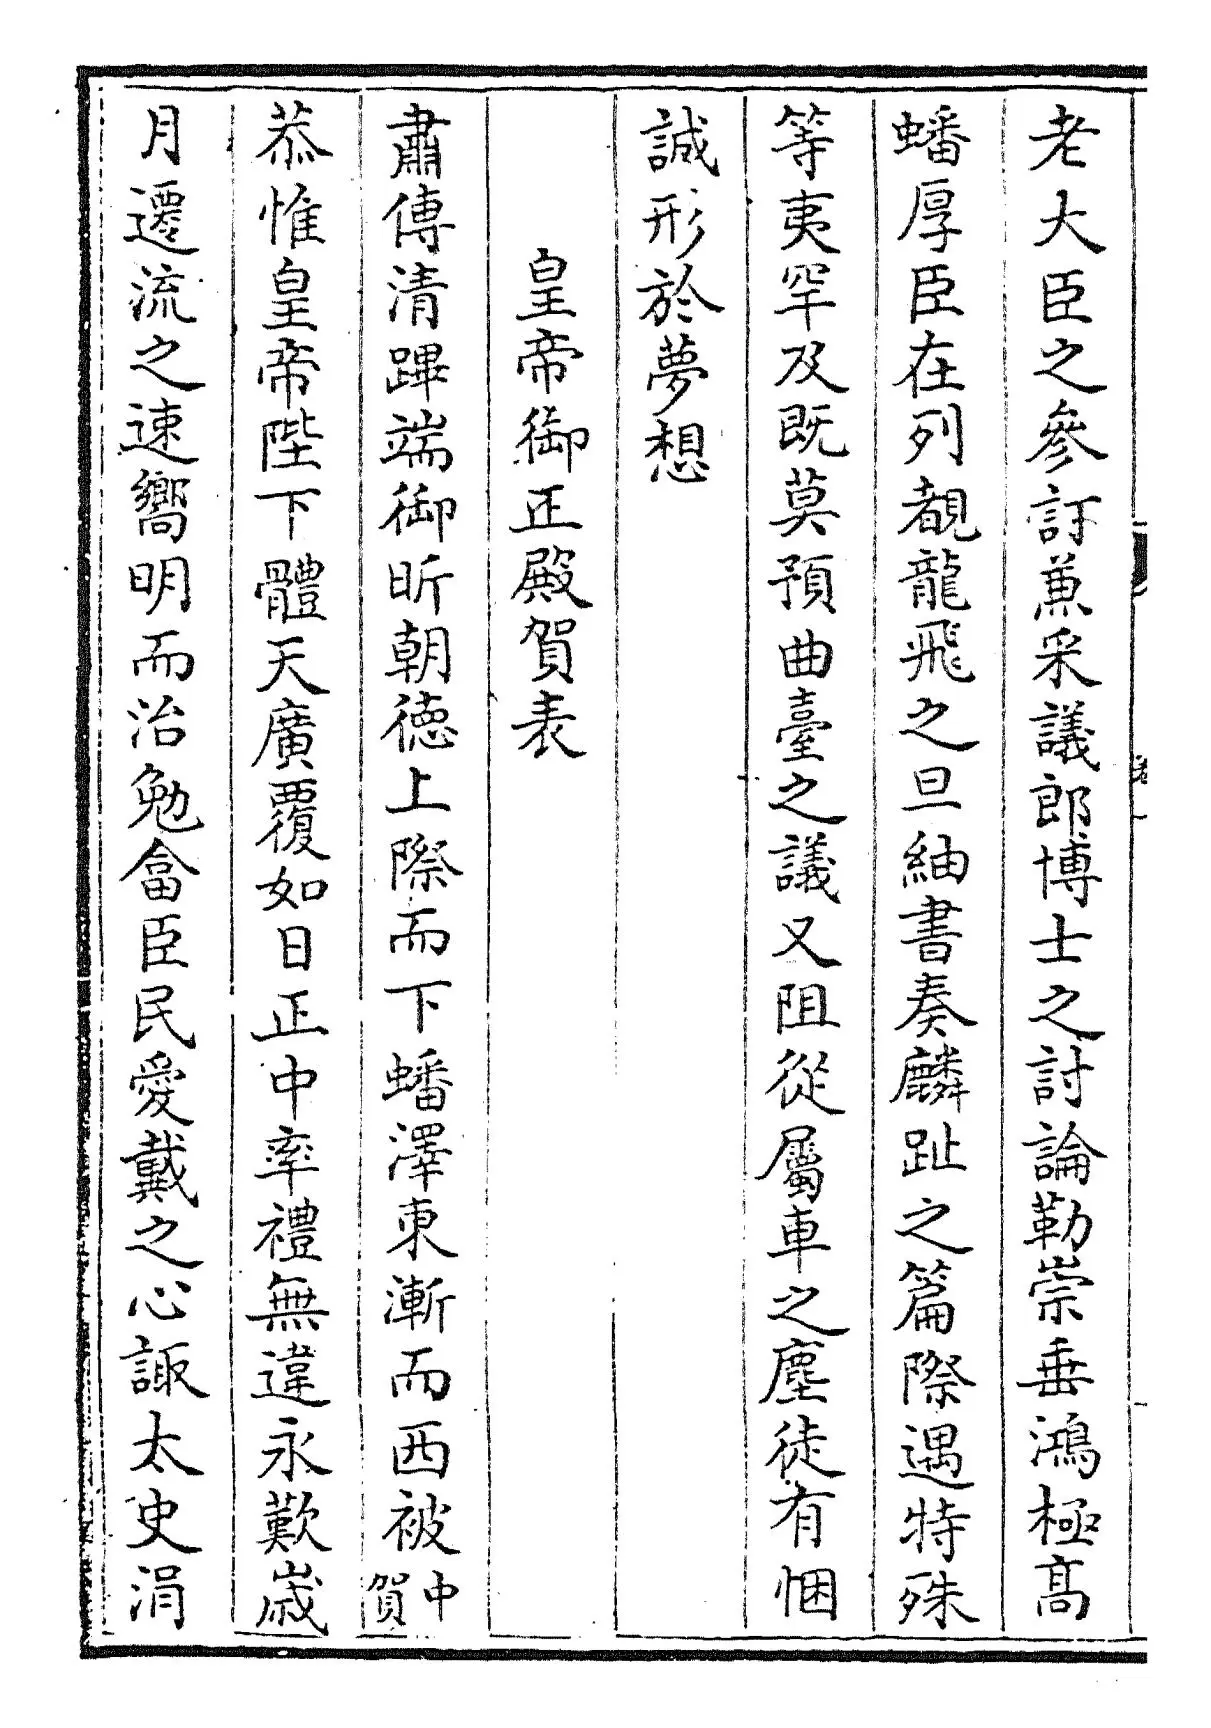 老大臣之參訂兼采議郎博士之討論勒崇垂鴻極髙
蟠厚臣在列覩龍飛之旦紬書奏麟趾之篇際遇特殊
等夷罕及既莫預曲臺之議又阻從屬車之塵徒有悃
誠形於夢想
皇帝御正殿賀表
肅傳清蹕端御昕朝德上際而下蟠澤東漸而西被中賀
恭惟皇帝陛下體天廣覆如日正中率禮無違永歎歳
月遷流之速嚮明而治勉畣臣民愛戴之心諏太史涓